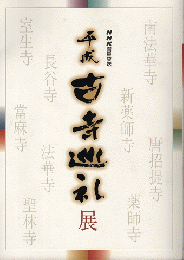 平成
古寺巡礼
展
南法華寺
新薬師寺
唐招提寺
薬師寺
室生寺
長谷寺
當麻寺
法華寺
聖林寺